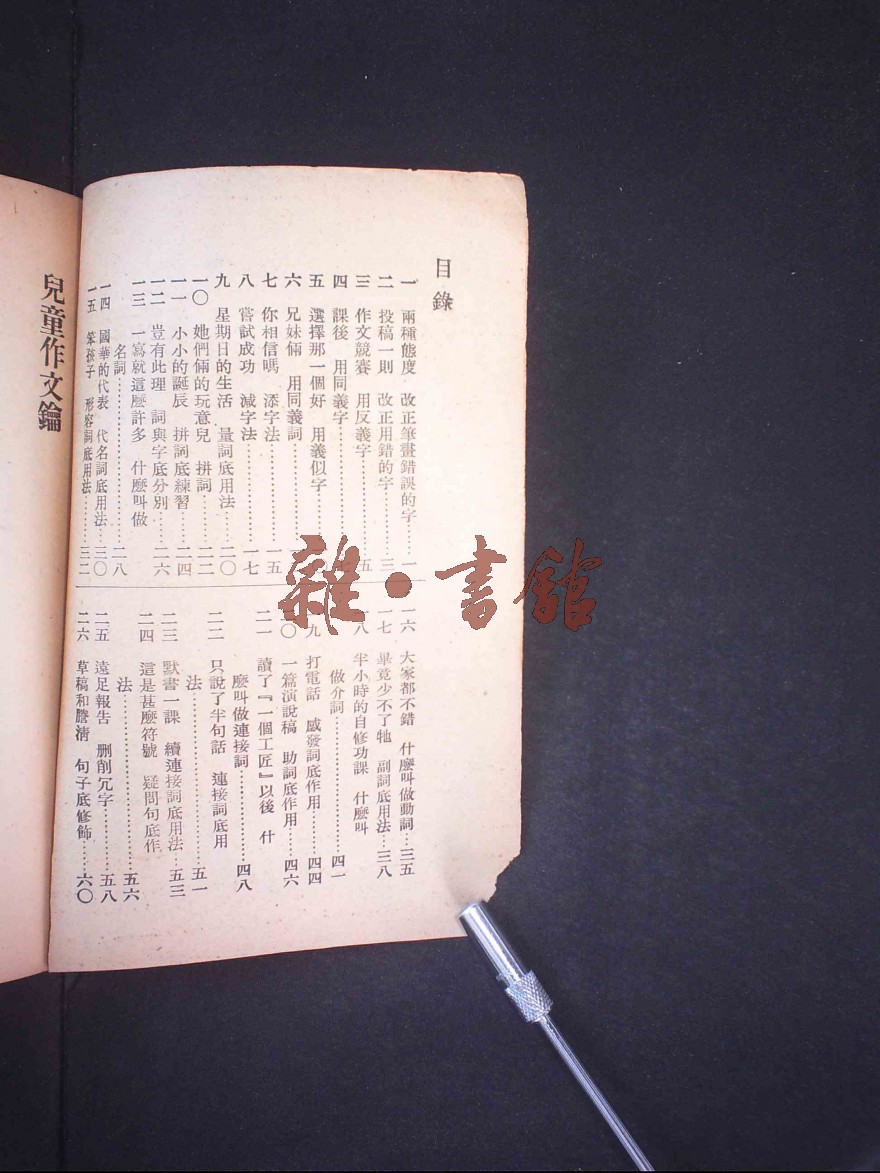 目錄
一 兩種態度 改正筆畫錯誤的字……一
二 投稿一則 改正用錯的字……三
三 作文競賽 用反義字……五
四 課後 用同義字……
五 選擇那一個好 用義似字……
六 兄妹倆 用同義詞……
七 你相信嗎 添字法……一五
八 嘗試成功 減字法……一七
九 星期日的生活 量詞底用法……二〇
一〇 她們倆的玩意兒 拼詞……二二
一一 小小的誕辰 拼詞底練習……二四
一二 豈有此理 詞與字底分別……二六
一三 一寫就這麼許多 什麼叫做
名詞……二八
一四 國華的代表 代名詞底用法……三〇
一五 笨孩子 形容詞底用法……三二
一六 大家都不錯 什麼叫做動詞……三五
一七 畢竟少不了牠 副詞底用法……三八
一八 半小時的自修功課 什麼叫
做介詞……四一
九 打電話 感發詞底作用……四四
〇 一篇演說稿 助詞底作用……四六
二一 讀了『一個工匠』以後 什
麼叫做連接詞……四八
二二 只說了半句話 連接詞底用
法……五一
二三 默書一課 續連接詞底用法……五三
二四 這是甚麼符號 疑問句底作
法……五六
二五 遠足報告 刪削冗字……五八
二六 草稿和謄清 句子底修飾……六〇
兒童作文鑰
雜·書館